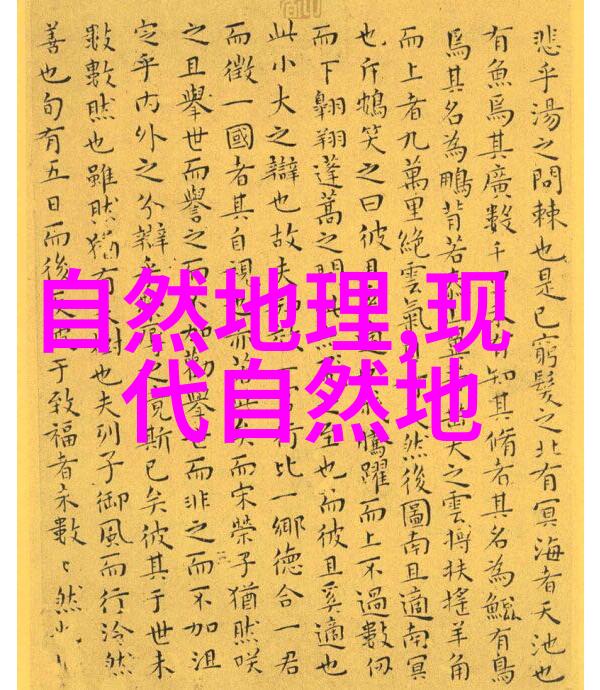 自然地理,现
代自然地
悲乎湯之問棘也是已窮髮之北有冥海者天池也
有魚焉其廣數千有知其脩者其名為鯤有鳥
焉其名為鵬背若垂天之雲摶扶搖羊角
而上者九萬里絕雲氣然後圖南且適南冥
也斥鴳笑之曰彼且騰躍而上不過數仞
而下翱翔蓬蒿之間之至也而彼且奚適也
此小大之辯也故夫行比一鄉德合一君
而徵一國者其自視也矣而宋榮子猶然咲
之且舉世而譽之而不加勸舉世而非之而不加沮
定乎內外之分辯之竟斯已矣彼其于世未
數數然也雖然猶有樹也夫列子御風而行泠然
善也旬有五日而後于致福者未數〻然也